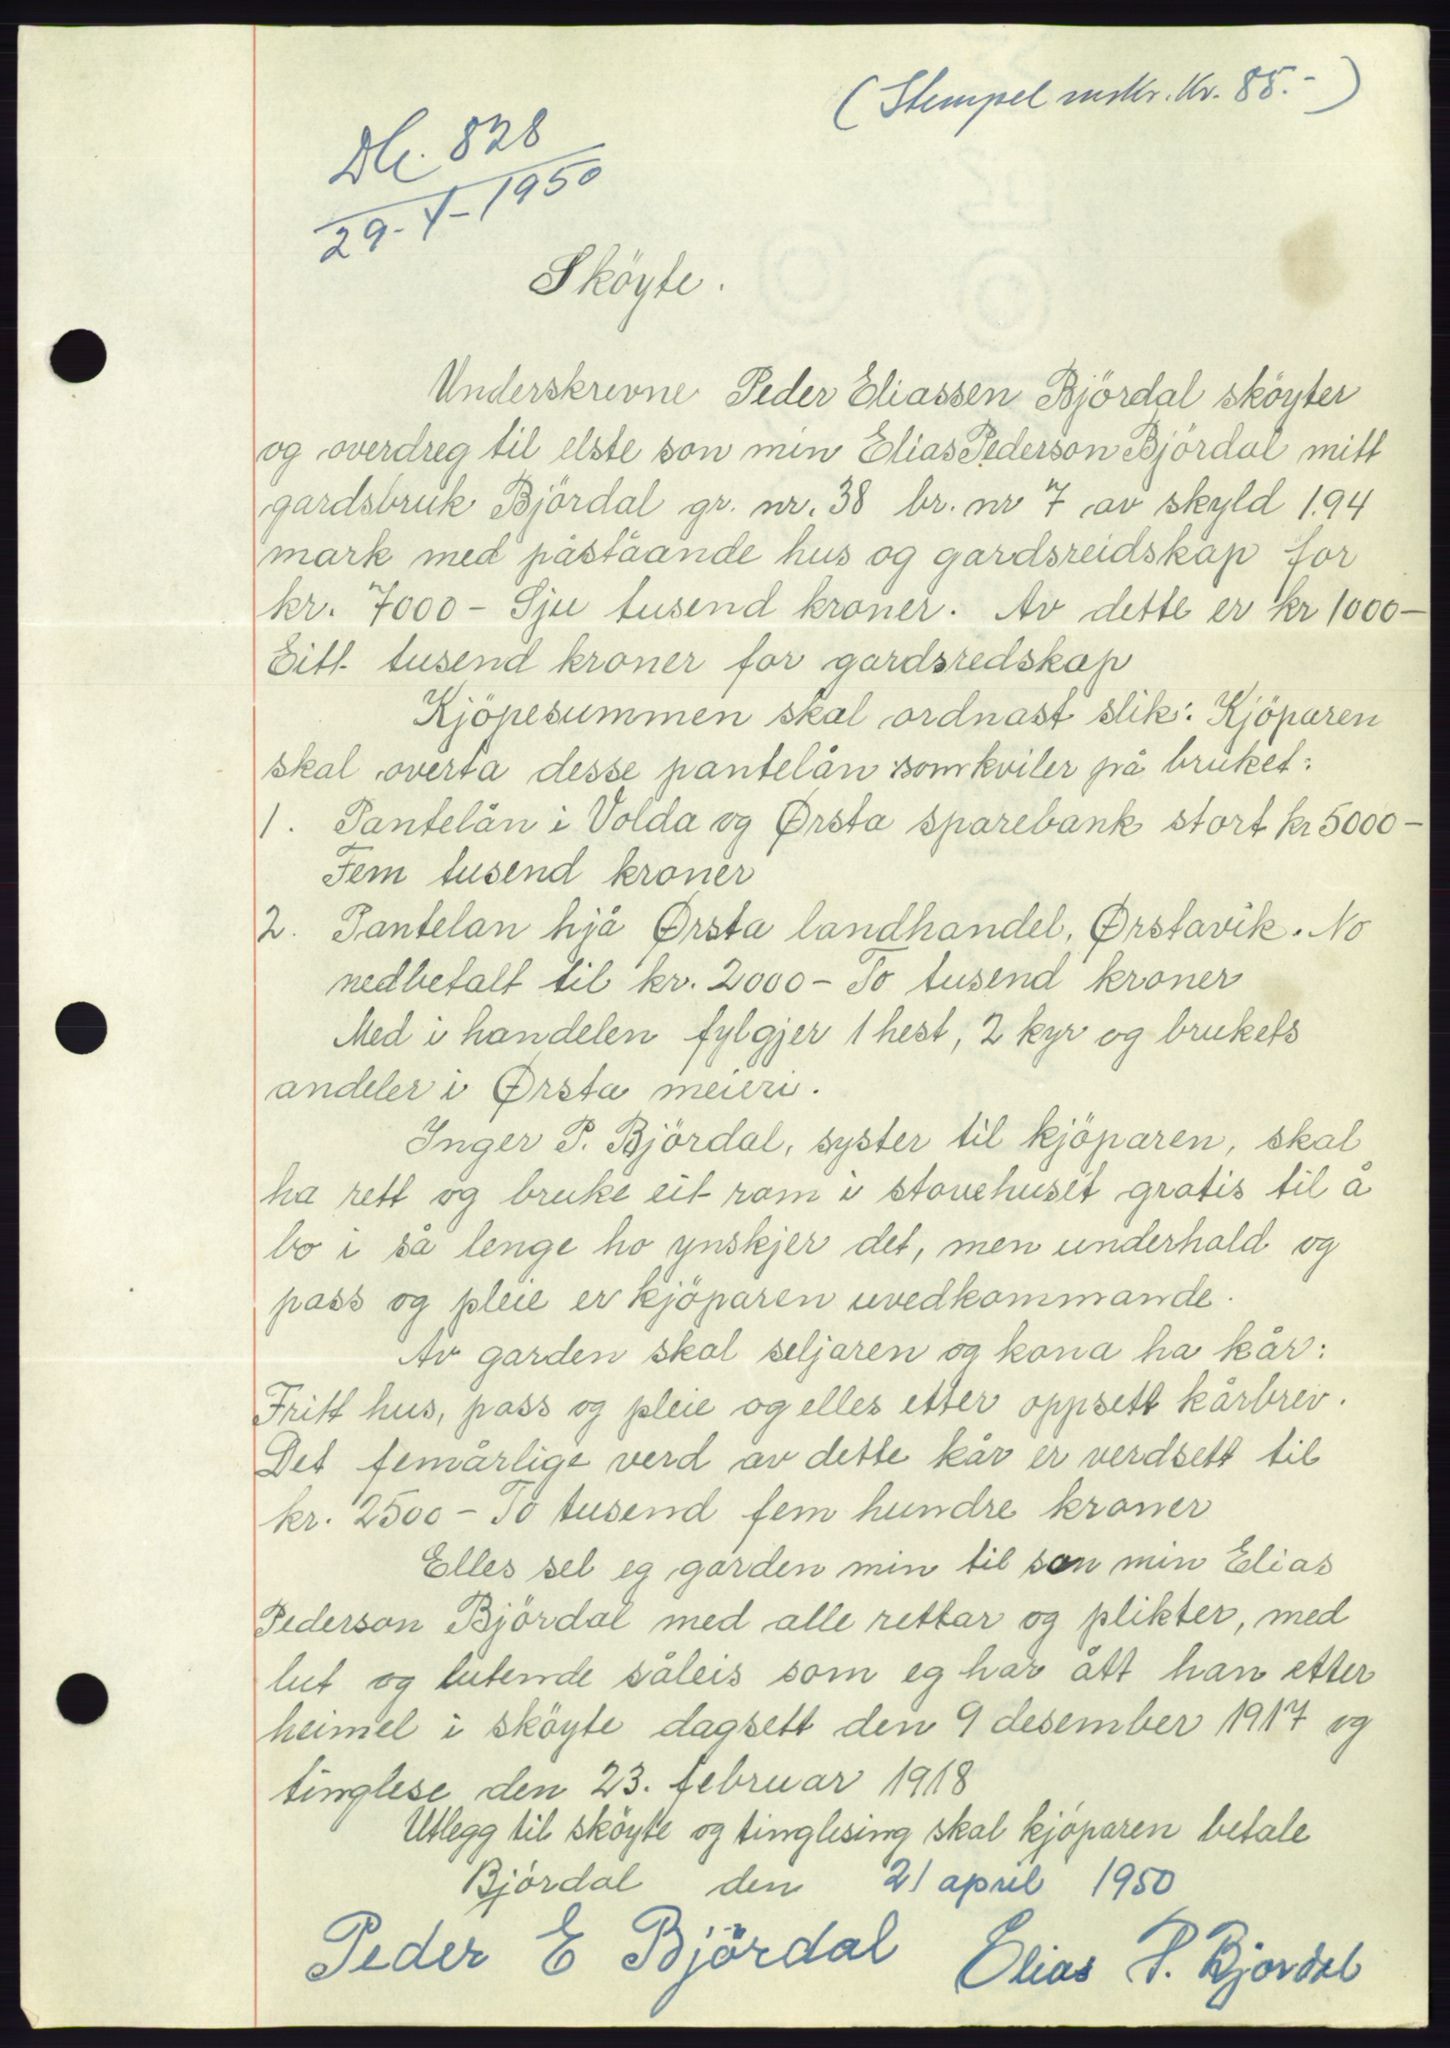 (Stempel mrkr. Kr. 85.-)
Db. 828
29-4-1950
Sköyte.
Underskrevne Peder Eliassen Björdal sköyter
og overdreg til elste son min Elias Pederson Björdal mitt
gardsbruk Björdal gr. nr. 38 br. nr 7 av skyld 1.94
mark med påståande hus og gardsreidskap for
kr. 7000- Sju tusend kroner. Av dette er kr 1000-
Eitt tusend kroner for gardsredskap
Kjöpesummen skal ordnast slik: Kjöparen
skal overta desse pantelån som kviler på bruket:
1. Pantelån i Volda og Ørsta sparebank stort kr 5000-
Fem tusend kroner
2. Pantelan hjå Ørsta landhandel, Ørstavik. No
nedbetalt til kr. 2000- To tusend kroner
Med i handelen fylgjer 1 hest, 2 kyr og brukets
andeler i Ørsta meieri.
Inger P. Björdal, syster til kjöparen, skal
ha rett og bruke eit rom i stovehuset gratis til å
bo i så lenge ho ynskjer det, men underhald og
pass og pleie er kjöparen uvedkommande.
Av garden skal seljaren og kona ha kår:
Fritt hus, pass og pleie og elles etter oppsett kårbrev.
Det femårlige verd av dette kår er verdsett til
kr. 2500- To tusend fem hundre kroner
Elles sel eg garden min til son min Elias
Pederson Björdal med alle rettar og plikter, med
lut og lutende såleis som eg har ått han etter
heimel i sköyte dagsett den 9 desember 1917 og
tinglese den 23. februar 1918
Utlegg til sköyte og tinglesing skal kjöparen betale
Björdal den 21 april 1950
Peder E Björdal Elias P. Bjordal